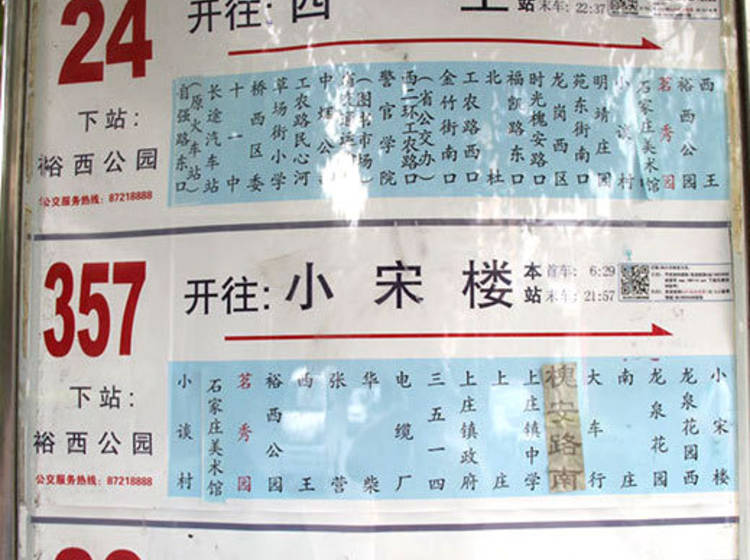 24
开往: 西 王
站 末车: 22:37
下站:
裕西公园
公交服务热线: 87218888
自强路东口
(原火车站)
长途汽车站
十一中
桥西区委
草场街小学
工农路民心河
(图书市场)
警官学院
西二环工农路口
(省公交办)
金竹街南口
工农路西口
北杜
福凯路东口
时光槐安路口
龙岗西区
苑东街南口
明靖庄园
小谈村
石家庄美术馆
茗秀园
裕西公园
西王
357
开往: 小宋楼
本站 首车: 6:29
末车: 21:57
下站:
裕西公园
公交服务热线: 87218888
小谈村
石家庄美术馆
茗秀园
裕西公园
西王
张营
华柴
电缆厂
三五一四
上庄镇政府
上庄
上庄镇中学
槐安路南
大车行
南庄
龙泉花园
龙泉花园西
小宋楼